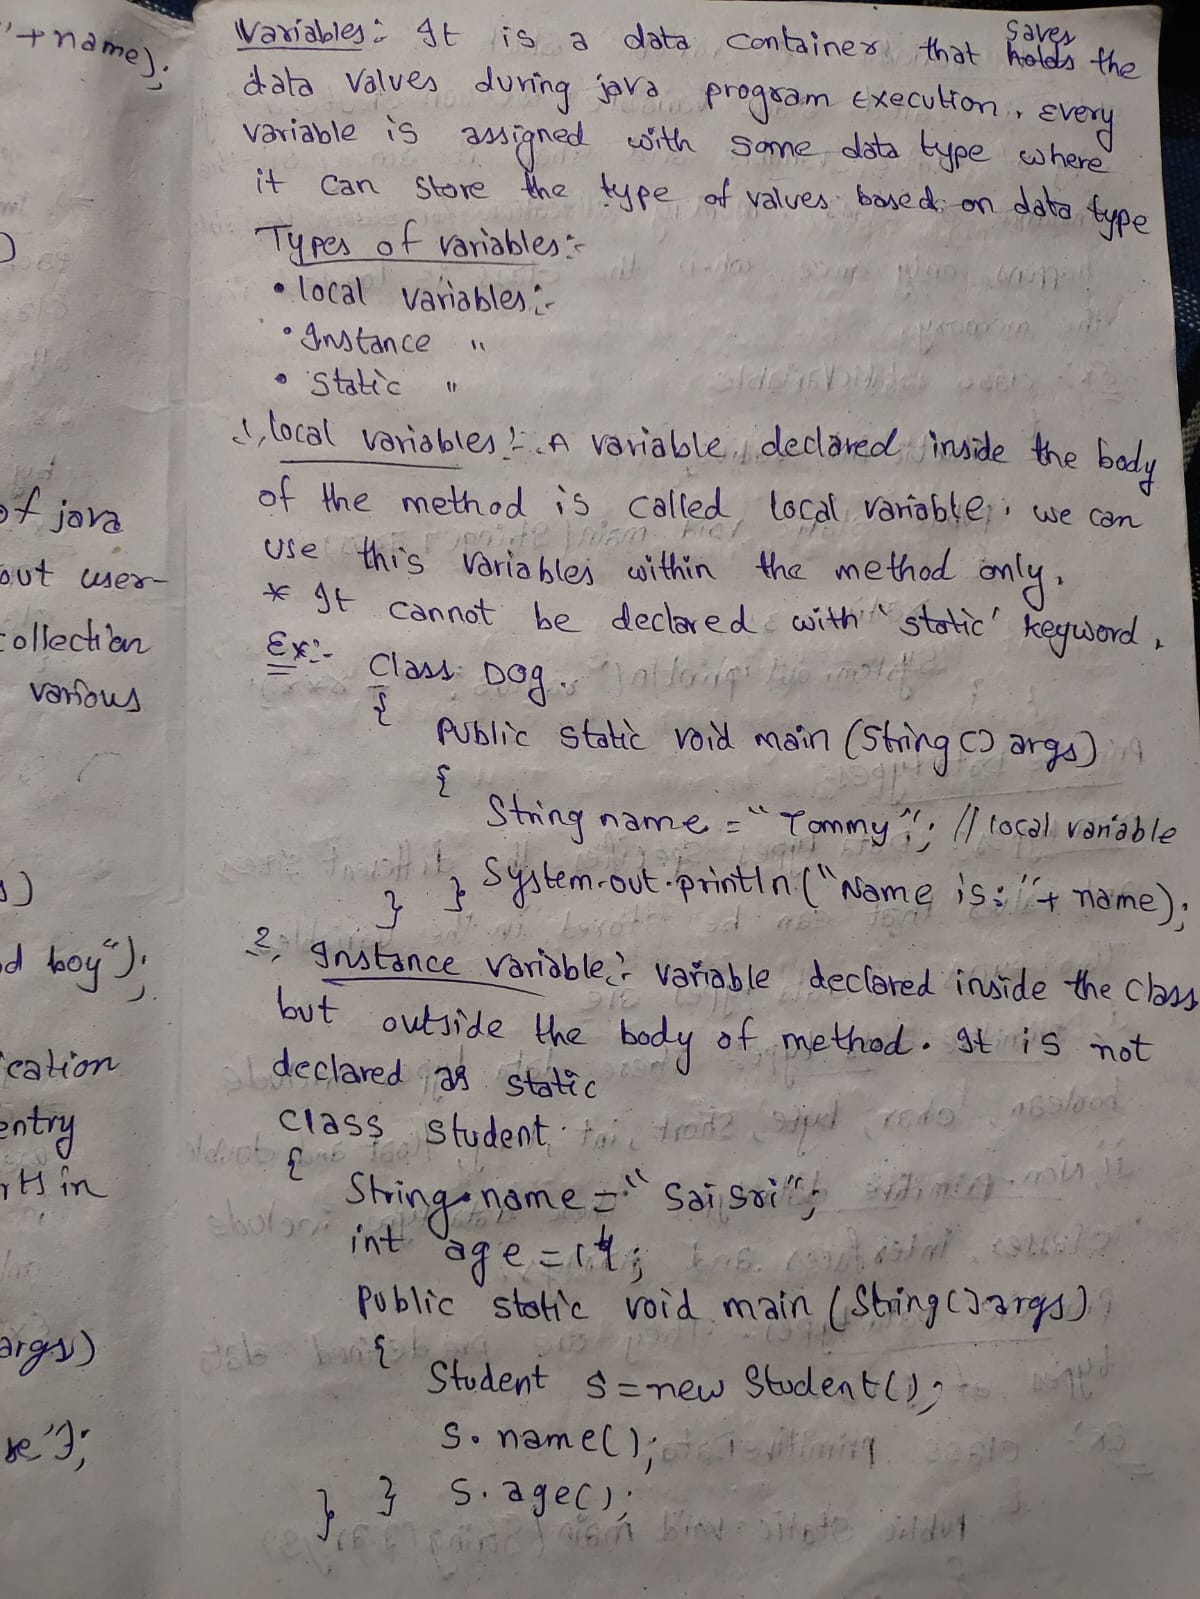 "+name);
of java
out user-
collection
various
s)
d boy");
cation
entry
rts in
args)
Variables:- It is a data container that saves holds the
data values during java program Execution. Every
variable is assigned with some data type where
it can store the type of values based on data type
Types of variables:-
• local variables:-
• Instance "
• Static "
1, local variables:- A variable declared inside the body
of the method is called local variable. we can
use this variables within the method only.
* It cannot be declared with 'static' keyword.
Ex:- Class Dog
{
Public static void main (String() args)
{
String name = "Tommy"; // local variable
System.out.println("Name is:"+ name);
} }
2, Instance variable:- variable declared inside the class
but outside the body of method. It is not
declared as static
Class Student
{
String name = "Sai Sri";
int age = 14;
Public static void main (String() args)
{
Student s=new Student();
s.name();
s.age();
} }